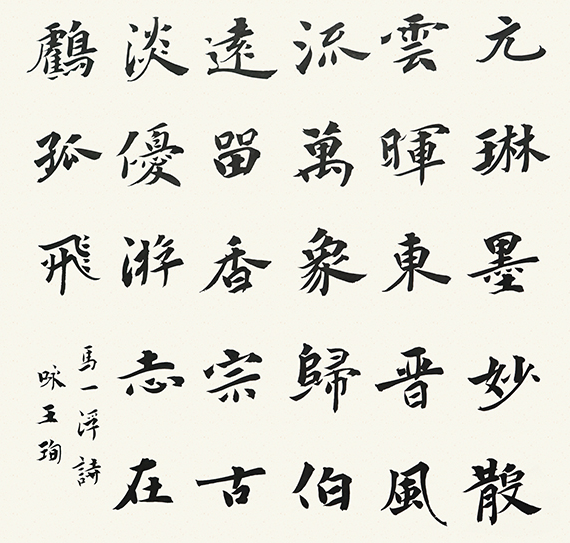 元琳墨妙散
雲暉東晉風
流萬象歸伯
遠留香宗古
淡優游志在
鸖孤飛
馬一浮詩
咏王珣